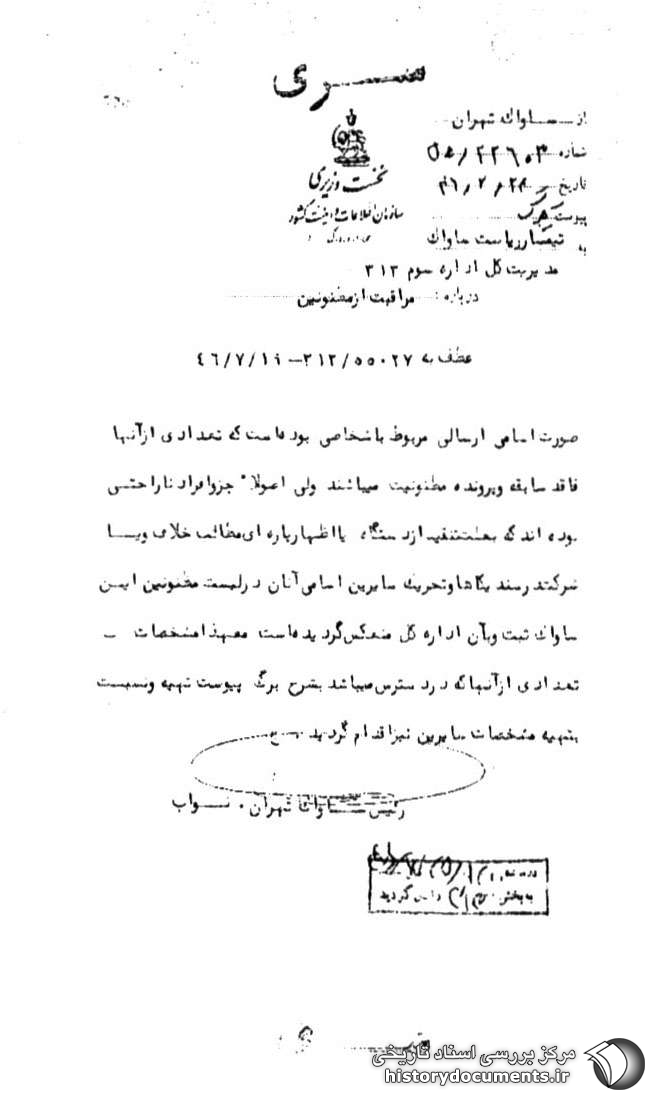 سری
از ساواک تهران
شماره
تاریخ
پیوست برگ
نخست وزیری
سازمان اطلاعات و امنیت کشور
به تیمسار ریاست ساواک
مدیریت کل اداره سوم ۳۱۳
درباره: مراقبت از مظنونین
عطف به ۳۱۲/۵۵۰۲۷-۴۶/۷/۱۹
صورت اسامی ارسالی مربوط باشخاصی بوده است که تعدادی از آنها
فاقد سابقه و پرونده مظنونیت میباشند ولی اصولاً جزو افراد ناراحتی
بوده اند که بعلت تنفید از دستگاه یا اظهار پاره ای مطالب خلاف و یا
شرکت در سندیکاها و تحریک سایرین اسامی آنان در لیست مظنونین این
ساواک ثبت و بآن اداره کل منعکس گردیده است معهذا مشخصات -
تعدادی از آنها که در دسترس میباشد بشرح برگ پیوست تهیه و نسبت
بتهیه مشخصات سایرین نیز اقدام گردید
رئیس ساواک تهران . نواب
به بخش گردید
سری
مرکز بررسی اسناد تاریخی
historydocuments.ir